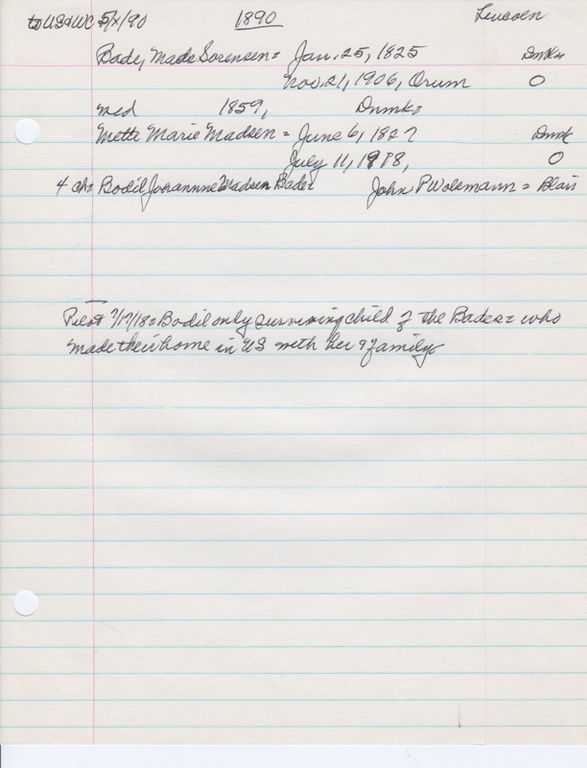 to US & WC 5/x/90 1890
Bade, Mads Sorensen = Jan. 25, 1825 Dnmk =
Nov. 21, 1906, Orum O
med 1859, Dnmk =
Mette Marie Madsen = June 6, 1827 Dnmk
July 11, 1918, O
4 ch = Bodil Johannne Madsen Bade = John P Wolsmann = Blair
Pilot 7/17/18 = Bodil only surviving child of the Bades = who
made their home in US with her & family =